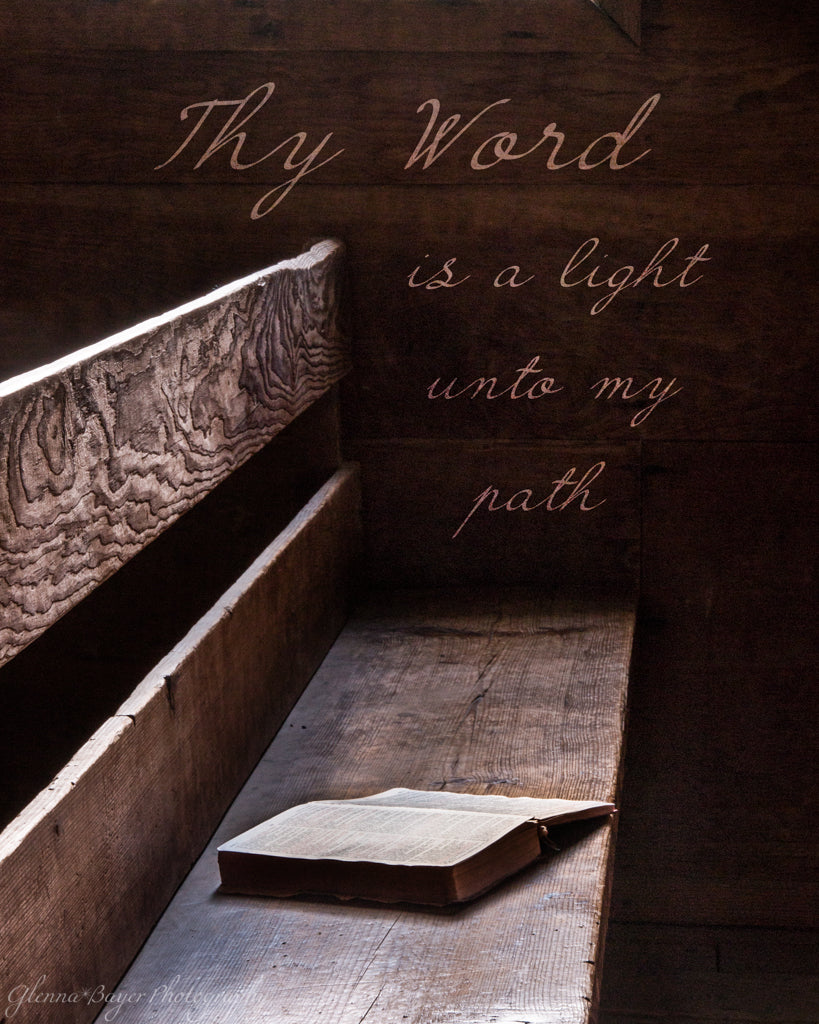 Thy Word
is a light
unto my
path
Glenna Bayer Photography